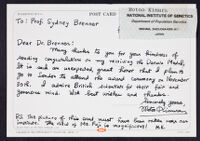 POST CARD
Motoo Kimura
NATIONAL INSTITUTE OF GENETICS
Department of Population Genetics
MISHIMA, SHIZUOKA-KEN 411
JAPAN
To: Prof. Sydney Brenner
Dear Dr. Brenner:
Many thanks to you for your kindness of
sending congratulation on my receiving the Darwin Medal.
It is such an unexpected, great honor that I plan to
go to London to attend the award ceremony on November
30th. I admire British scientists for their fair and
generous mind. With best wishes and thanks.
Sincerely yours,
Motoo Kimura
P.S. The picture of this card must have been taken near our
institute. The view of Mt. Fuji is magnificent! M.K.